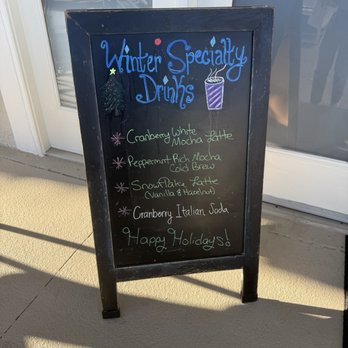 Winter Specialty
Drinks
Cranberry White
Mocha Latte
Peppermint Rich Mocha
Cold Brew
Snowflake Latte
(Vanilla & Hazelnut)
Cranberry Italian Soda
Happy Holidays!